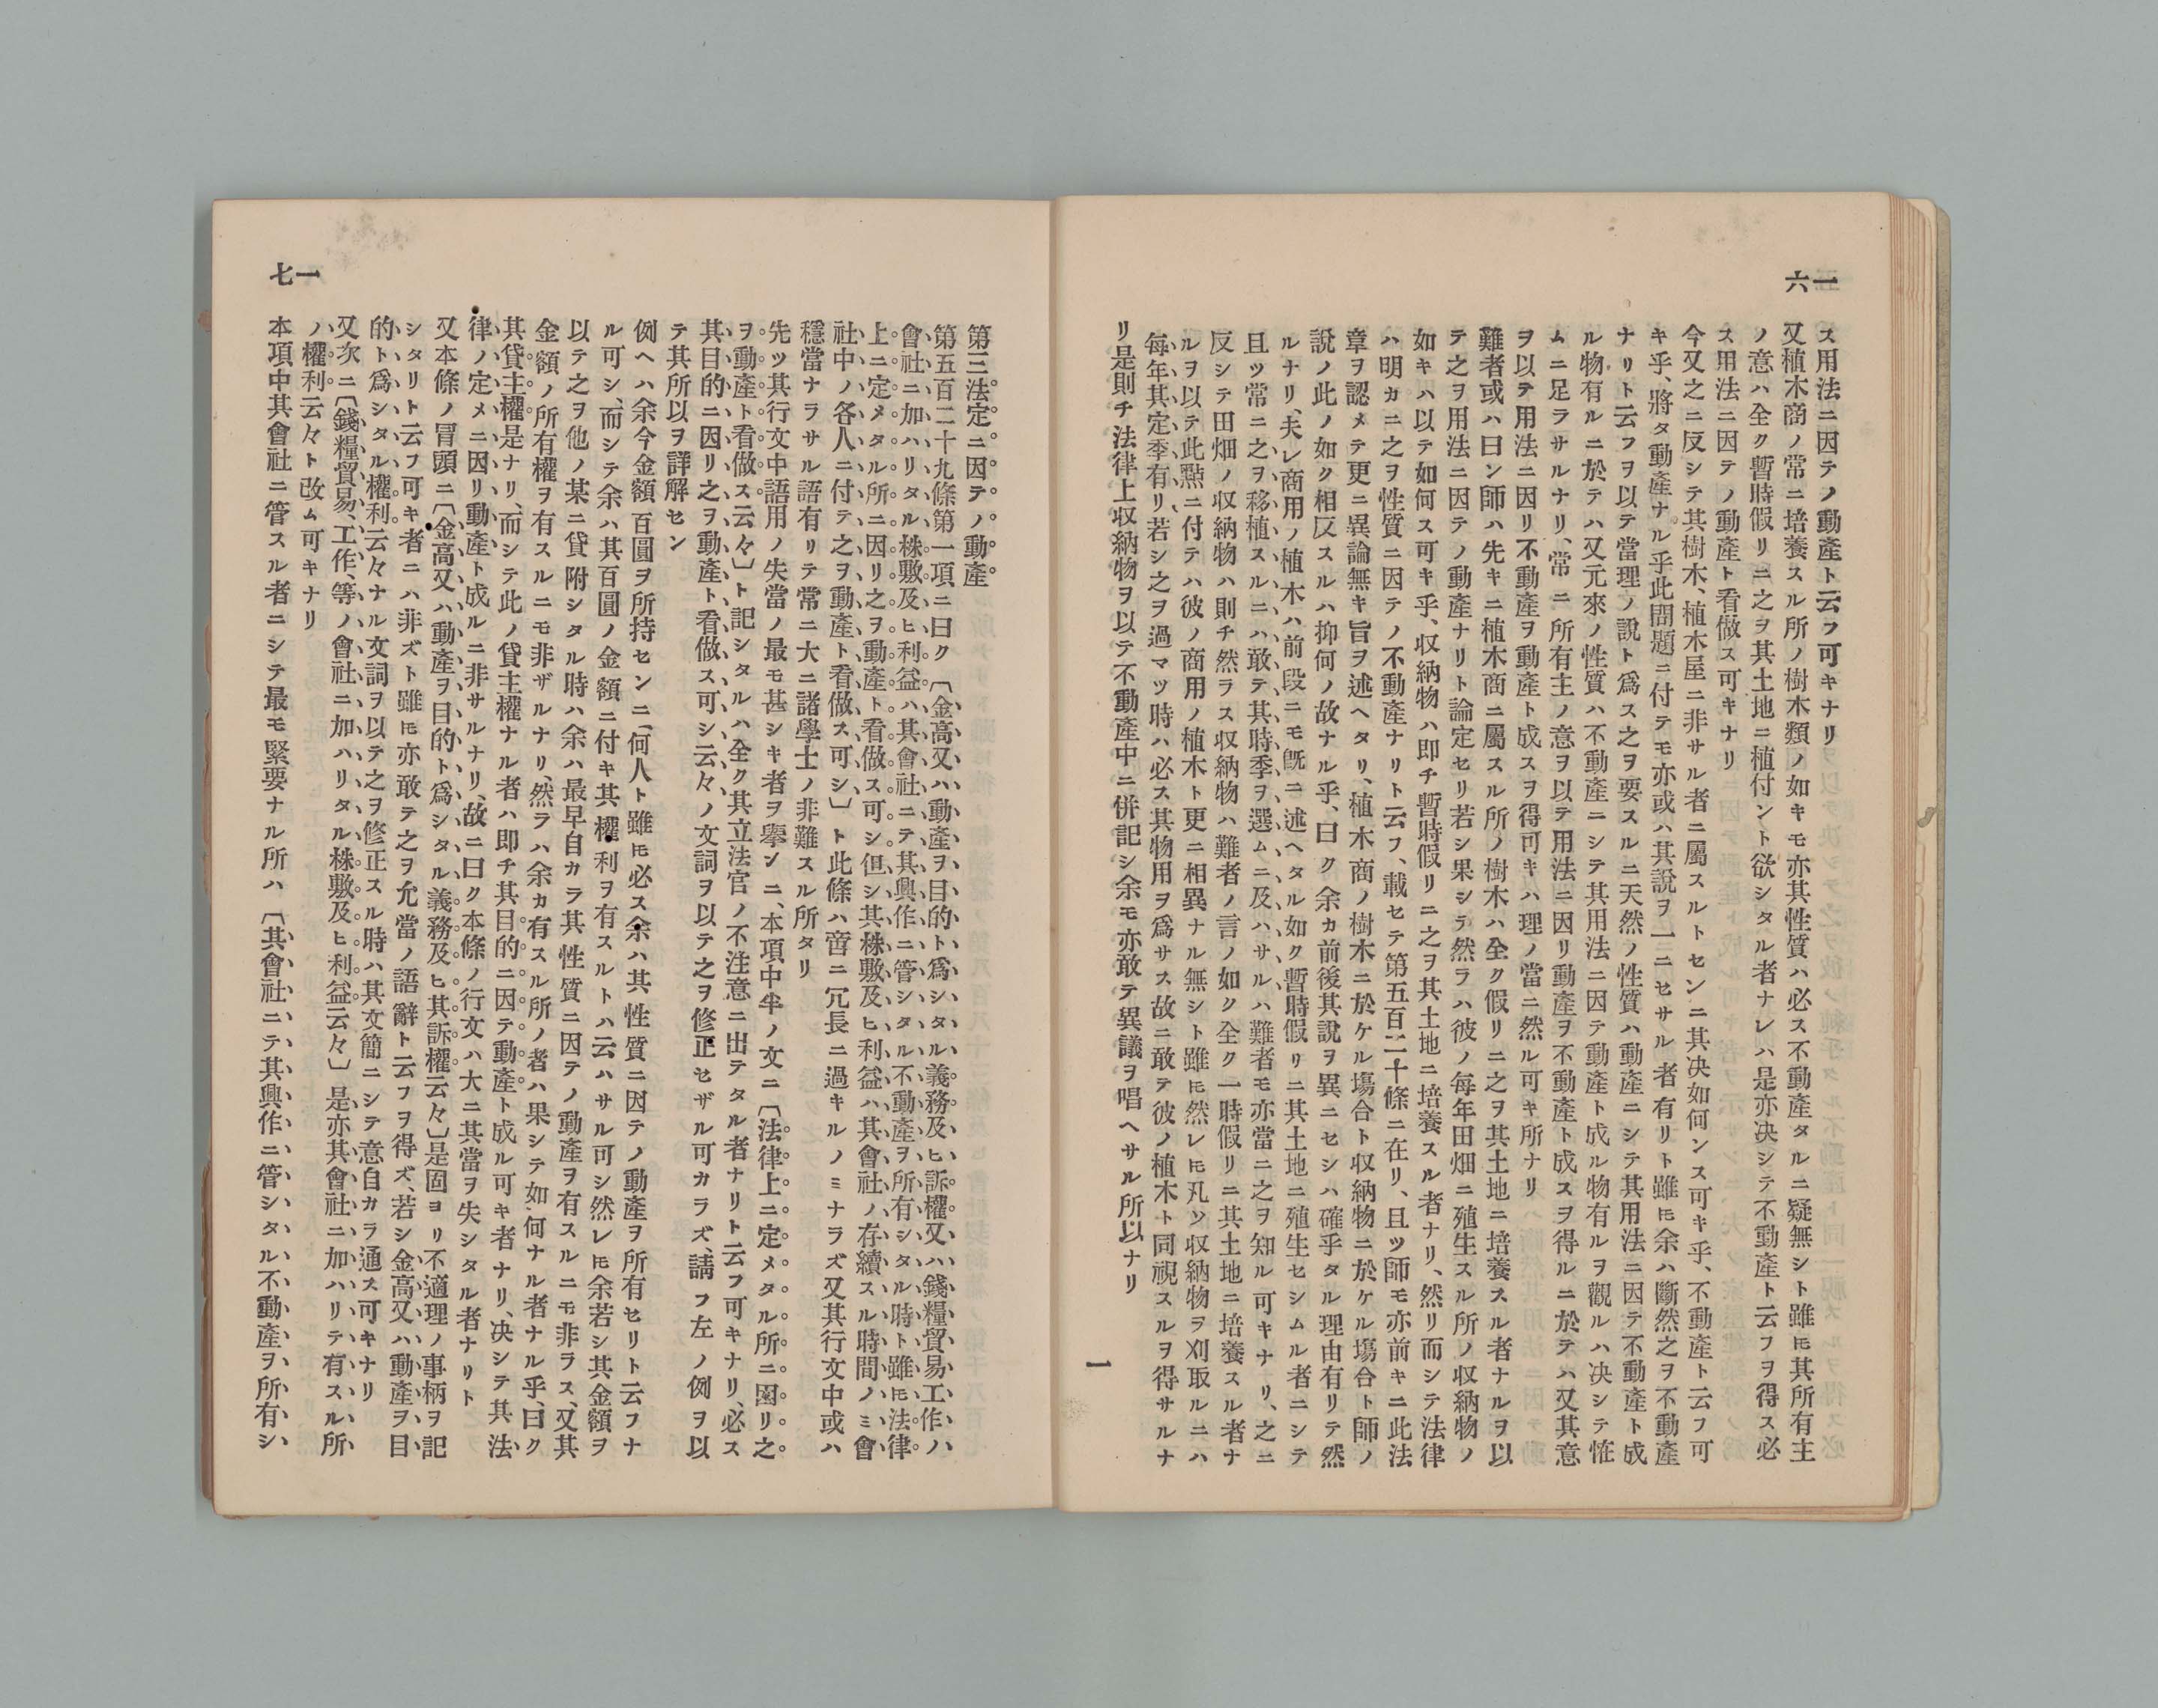 一六
ス用法ニ因テノ動產ト云フ可キナリ
又植木商ノ常ニ培養スル所ノ樹木類ノ如キモ亦其性質ハ必ス不動產タルニ疑無シト雖𪜈其所有主
ノ意ハ全ク暫時假リニ之ヲ其土地ニ植付ント欲シタル者ナレハ是亦决シテ不動產ト云フヲ得ス必
ス用法ニ因テノ動產ト看做ス可キナリ
今又之ニ反シテ其樹木、植木屋ニ非サル者ニ屬スルトセンニ其决如何ンス可キ乎、不動產ト云フ可
キ乎、將タ動產ナル乎此問題ニ付テモ亦或ハ其說ヲ一ニセサル者有リト雖𪜈余ハ斷然之ヲ不動產
ナリト云フヲ以テ當理ノ說ト爲ス之ヲ要スルニ天然ノ性質ハ動產ニシテ其用法ニ因テ不動產ト成
ル物有ルニ於テハ又元來ノ性質ハ不動產ニシテ其用法ニ因テ動產ト成ル物有ルヲ觀ルハ决シテ恠
ムニ足ラサルナリ、常ニ所有主ノ意ヲ以テ用法ニ因リ動產ヲ不動產ト成スヲ得ルニ於テハ又其意
ヲ以テ用法ニ因リ不動產ヲ動產ト成スヲ得可キハ理ノ當ニ然ル可キ所ナリ
難者或ハ曰ン師ハ先キニ植木商ニ屬スル所ノ樹木ハ全ク假リニ之ヲ其土地ニ培養スル者ナルヲ以
テ之ヲ用法ニ因テノ動產ナリト論定セリ若シ果シテ然ラハ彼ノ每年田畑ニ殖生スル所ノ収納物ノ
如キハ以テ如何ス可キ乎、収納物ハ即チ暫時假リニ之ヲ其土地ニ培養スル者ナリ、然リ而シテ法律
ハ明カニ之ヲ性質ニ因テノ不動產ナリト云フ、載セテ第五百二十條ニ在リ、且ツ師モ亦前キニ此法
章ヲ認メテ更ニ異論無キ旨ヲ述ヘタリ、植木商ノ樹木ニ於ケル塲合ト収納物ニ於ケル塲合ト師ノ
說ノ此ノ如ク相反スルハ抑何ノ故ナル乎、曰ク余カ前後其說ヲ異ニセシハ確乎タル理由有リテ然
ルナリ、夫レ商用ノ植木ハ前段ニモ旣ニ述ヘタル如ク暫時假リニ其土地ニ殖生セシムル者ニシテ
且ツ常ニ之ヲ移植スルニハ敢テ其時季ヲ選ムニ及ハサルハ難者モ亦當ニ之ヲ知ル可キナリ、之ニ
反シテ田畑ノ収納物ハ則チ然ラス収納物ハ難者ノ言ノ如ク全ク一時假リニ其土地ニ培養スル者ナ
ルヲ以テ此㸃ニ付テハ彼ノ商用ノ植木ト更ニ相異ナル無シト雖𪜈然レ𪜈凡ソ収納物ヲ刈取ルニハ
每年其定季有リ若シ之ヲ過マツ時ハ必ス其物用ヲ爲サス故ニ敢テ彼ノ植木ト同視スルヲ得サルナ
リ是則チ法律上収納物ヲ以テ不動產中ニ併記シ余モ亦敢テ異議ヲ唱ヘサル所以ナリ
一
一七
第三法定ニ因テノ動產
第五百二十九條第一項ニ曰ク〔金高又ハ動產ヲ目的ト爲シタル義務及ヒ訴權又ハ錢糧貿易工作ハ
會社ニ加ハリタル株敷及ヒ利益ハ其會社ニテ其興作ニ管シタル不動產ヲ所有シタル時ト雖𪜈法律
上ニ定メタル所ニ因リ之ヲ動產ト看做ス可シ但シ其株敷及ヒ利益ハ其會社ノ存續スル時間ノミ會
社中ノ各人ニ付テ之ヲ動產ト看做ス可シ〕ト此條ハ啻ニ冗長ニ過キルノミナラズ又其行文中或ハ
穩當ナラサル語有リテ常ニ大ニ諸學士ノ非難スル所タリ
先ツ其行文中語用ノ失當ノ最モ甚シキ者ヲ擧ンニ、本項中半ノ文ニ〔法律上ニ定メタル所ニ因リ之
ヲ動產ト看做ス云々〕ト記シタルハ全ク其立法官ノ不注意ニ出テタル者ナリト云フ可キナリ、必ス
其目的ニ因リ之ヲ動產ト看做ス可シ云々ノ文詞ヲ以テ之ヲ修正セザル可カラズ、請フ左ノ例ヲ以
テ其所以ヲ詳解セン
例ヘハ余今金額百圓ヲ所持センニ、何人ト雖𪜈必ス余ハ其性質ニ因テノ動產ヲ所有セリト云フナ
ル可シ、而シテ余ハ其百圓ノ金額ニ付キ其權利ヲ有スルトハ云ハサル可シ然レ𪜈余若シ其金額ヲ
以テ之ヲ他ノ某ニ貸附シタル時ハ余ハ最早自カラ其性質ニ因テノ動產ヲ有スルニモ非ラス、又其
金額ノ所有權ヲ有スルニモ非ザルナリ、然ラハ余カ有スル所ノ者ハ果シテ如何ナル者ナル乎、曰ク
其貸主權是ナリ、而シテ此ノ貸主權ナル者ハ即チ其目的ニ因テ動產ト成ル可キ者ナリ、决シテ其法
律ノ定メニ因リ動產ト成ルニ非サルナリ、故ニ曰ク本條ノ行文ハ大ニ其當ヲ失シタル者ナリト
又本條ノ冒頭ニ〔金高又ハ動產ヲ目的ト爲シタル義務及ヒ其訴權云々〕是固ヨリ不適理ノ事柄ヲ記
シタリト云フ可キ者ニハ非ズト雖𪜈亦敢テ之ヲ允當ノ語辭ト云フヲ得ズ、若シ金高又ハ動產ヲ目
的ト爲シタル權利云々ナル文詞ヲ以テ之ヲ修正スル時ハ其文簡ニシテ意自カラ通ス可キナリ
又次ニ〔錢糧貿易、工作、等ノ會社ニ加ハリタル株敷及ヒ利益云々〕是亦其會社ニ加ハリテ有スル所
ノ權利云々ト改ム可キナリ
本項中其會社ニ管スル者ニシテ最モ緊要ナル所ハ〔其會社ニテ其興作ニ管シタル不動產ヲ所有シ